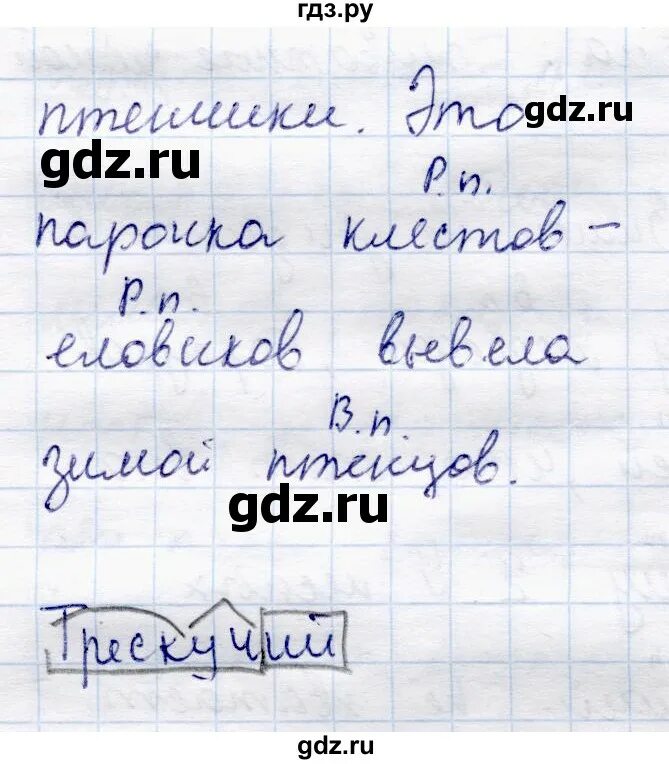 гдз.ру
птенчики. Это
gdz.ru
gdz.ru
Р.п.
парочка клестов –
Р.п.
еловиков вывела
В.п.
зимой птенцов.
gdz.ru
Трескучий
gdz.ru